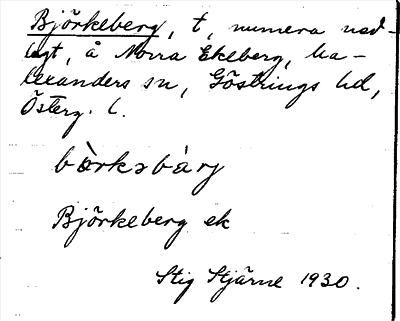 Björkeberg, t, numera ned-
lagt, å Norra Ekeberg, Ha-
lexanders sn, Göstrings hd,
Österg. l.
bàrkəbàrj
Björkeberg ek
Stig Stjärne 1930.